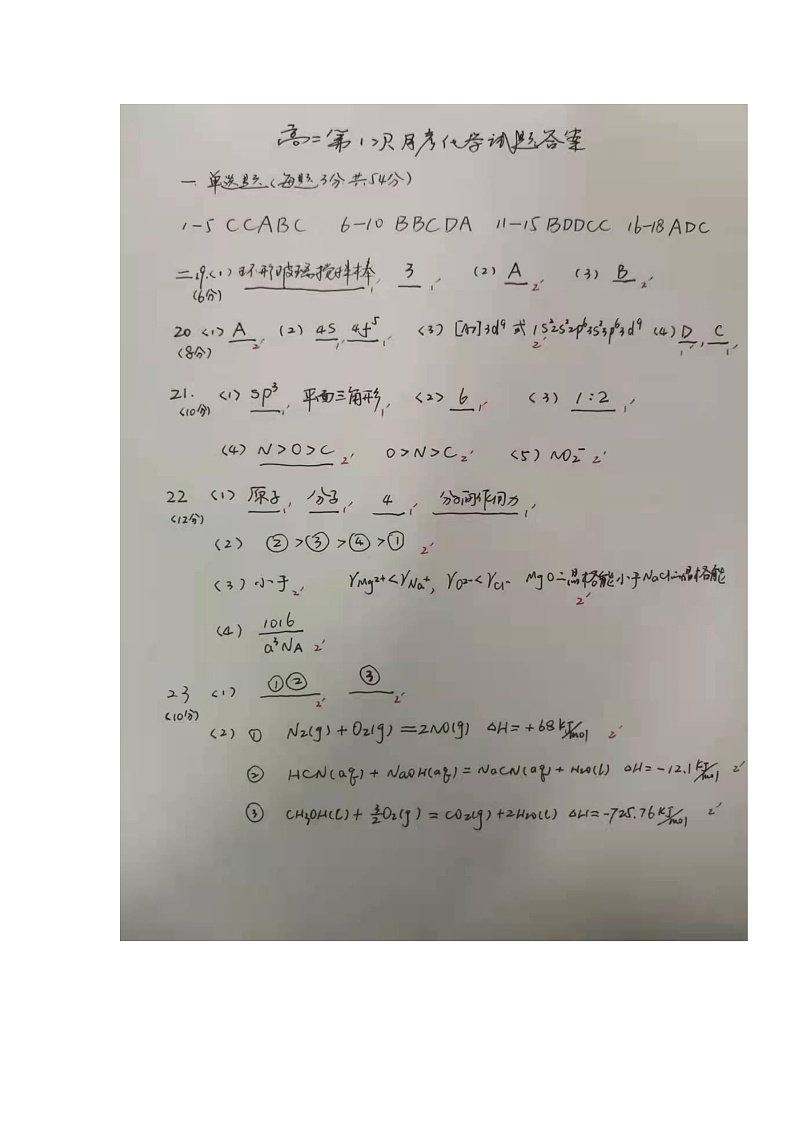 高二第1次月考化学试题答案
一 单选题(每题3分 共54分)
1-5 CCABC 6-10 BBCDA 11-15 BDDCC 16-18 ADC
二 19.(1) 环形玻璃搅拌棒 1′ 3 1′ (2) A 2′ (3) B 2′
(6分)
20 (1) A 2′ (2) 4S 1′ 4f⁵ 1′ (3) [Ar]3d⁹ 或 1S²2S²2p⁶3S²3p⁶3d⁹ 2′ (4) D 1′, C 1′
(8分)
21. (1) SP³ 1′ 平面三角形 1′ (2) 6 1′ (3) 1:2 1′
(10分)
(4) N>O>C 2′ O>N>C 2′ (5) NO₂⁻ 2′
22 (1) 原子 1′ 分子 1′ 4 1′ 分子间作用力 1′
(12分)
(2) ②>③>④>① 2′
(3) 小于 2′ rMg²⁺<rNa⁺, rO²⁻<rCl⁻ MgO 晶格能小于NaCl 晶格能 2′
(4) 1016/a³NA 2′
23 (1) ①② 2′ ③ 2′
(10分)
(2) ① N₂(g)+O₂(g)=2NO(g) ΔH=+68kJ/mol 2′
② HCN(aq)+NaOH(aq)=NaCN(aq)+H₂O(l) ΔH=-12.1kJ/mol 2′
③ CH₃OH(l)+3/2O₂(g)=CO₂(g)+2H₂O(l) ΔH=-725.76kJ/mol 2′